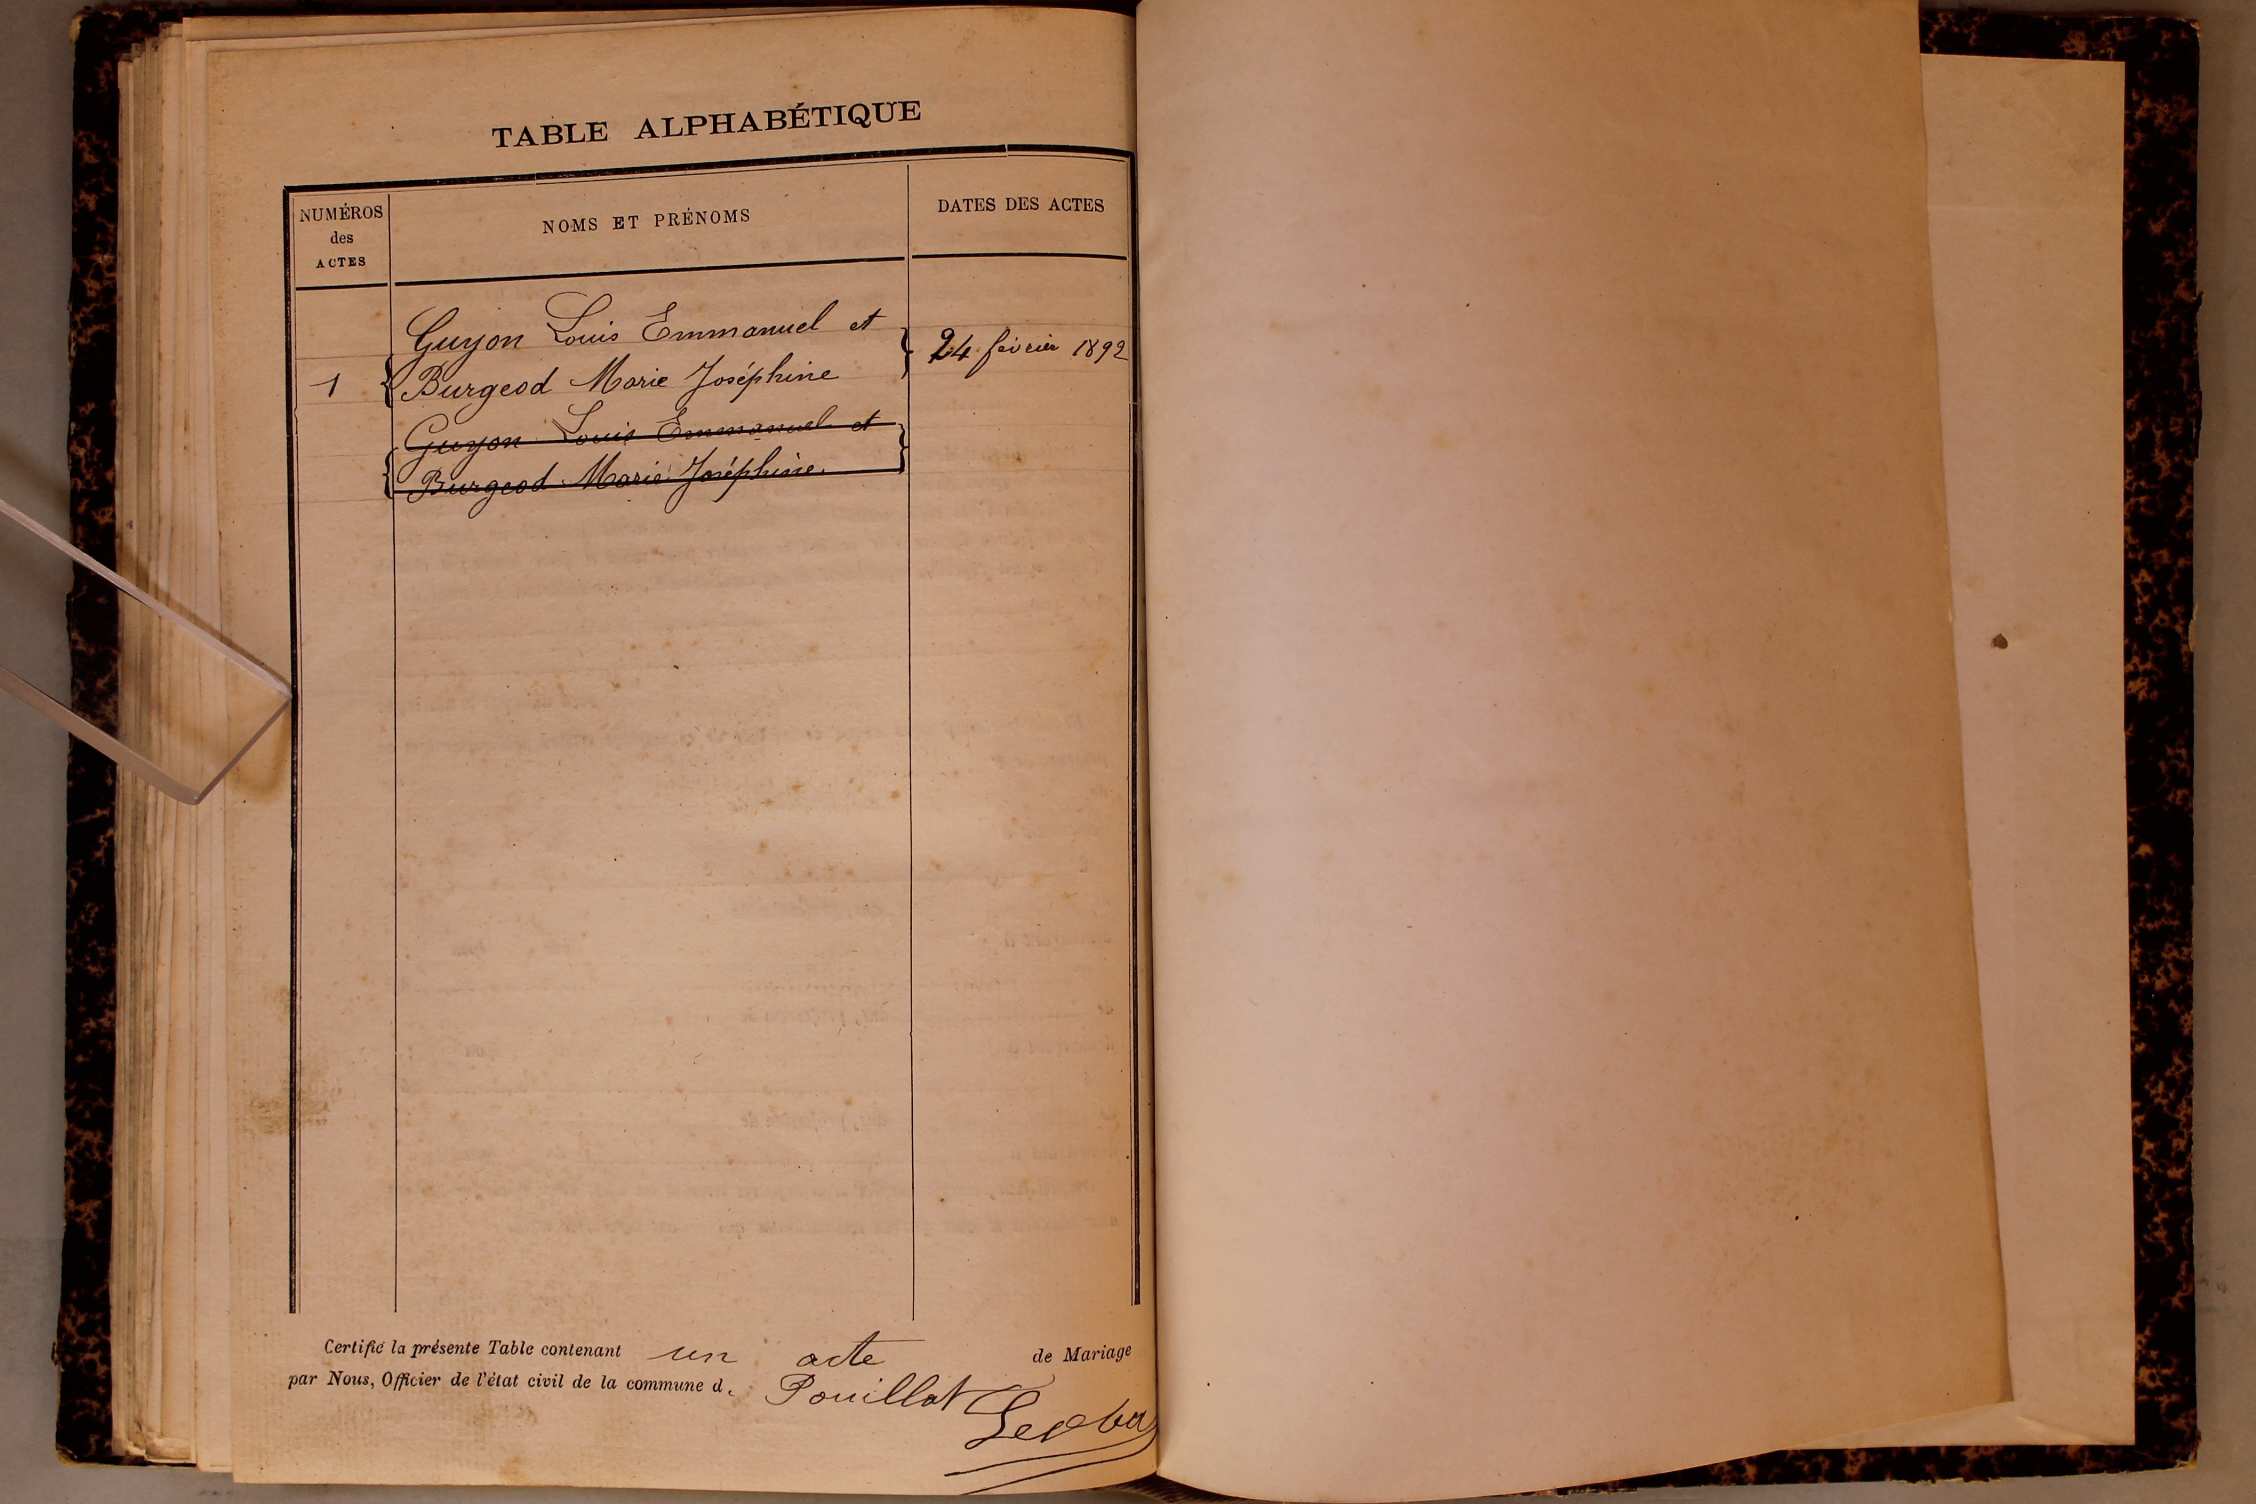 TABLE ALPHABÉTIQUE
NUMÉROS
des
ACTES
NOMS ET PRÉNOMS
DATES DES ACTES
Guyon Louis Emmanuel et
1 Burgeod Marie Joséphine
24 février 1892
Guyon Louis Emmanuel et
Burgeod Marie Joséphine
Certifié la présente Table contenant un acte de Mariage
par Nous, Officier de l'état civil de la commune d. Pouillat